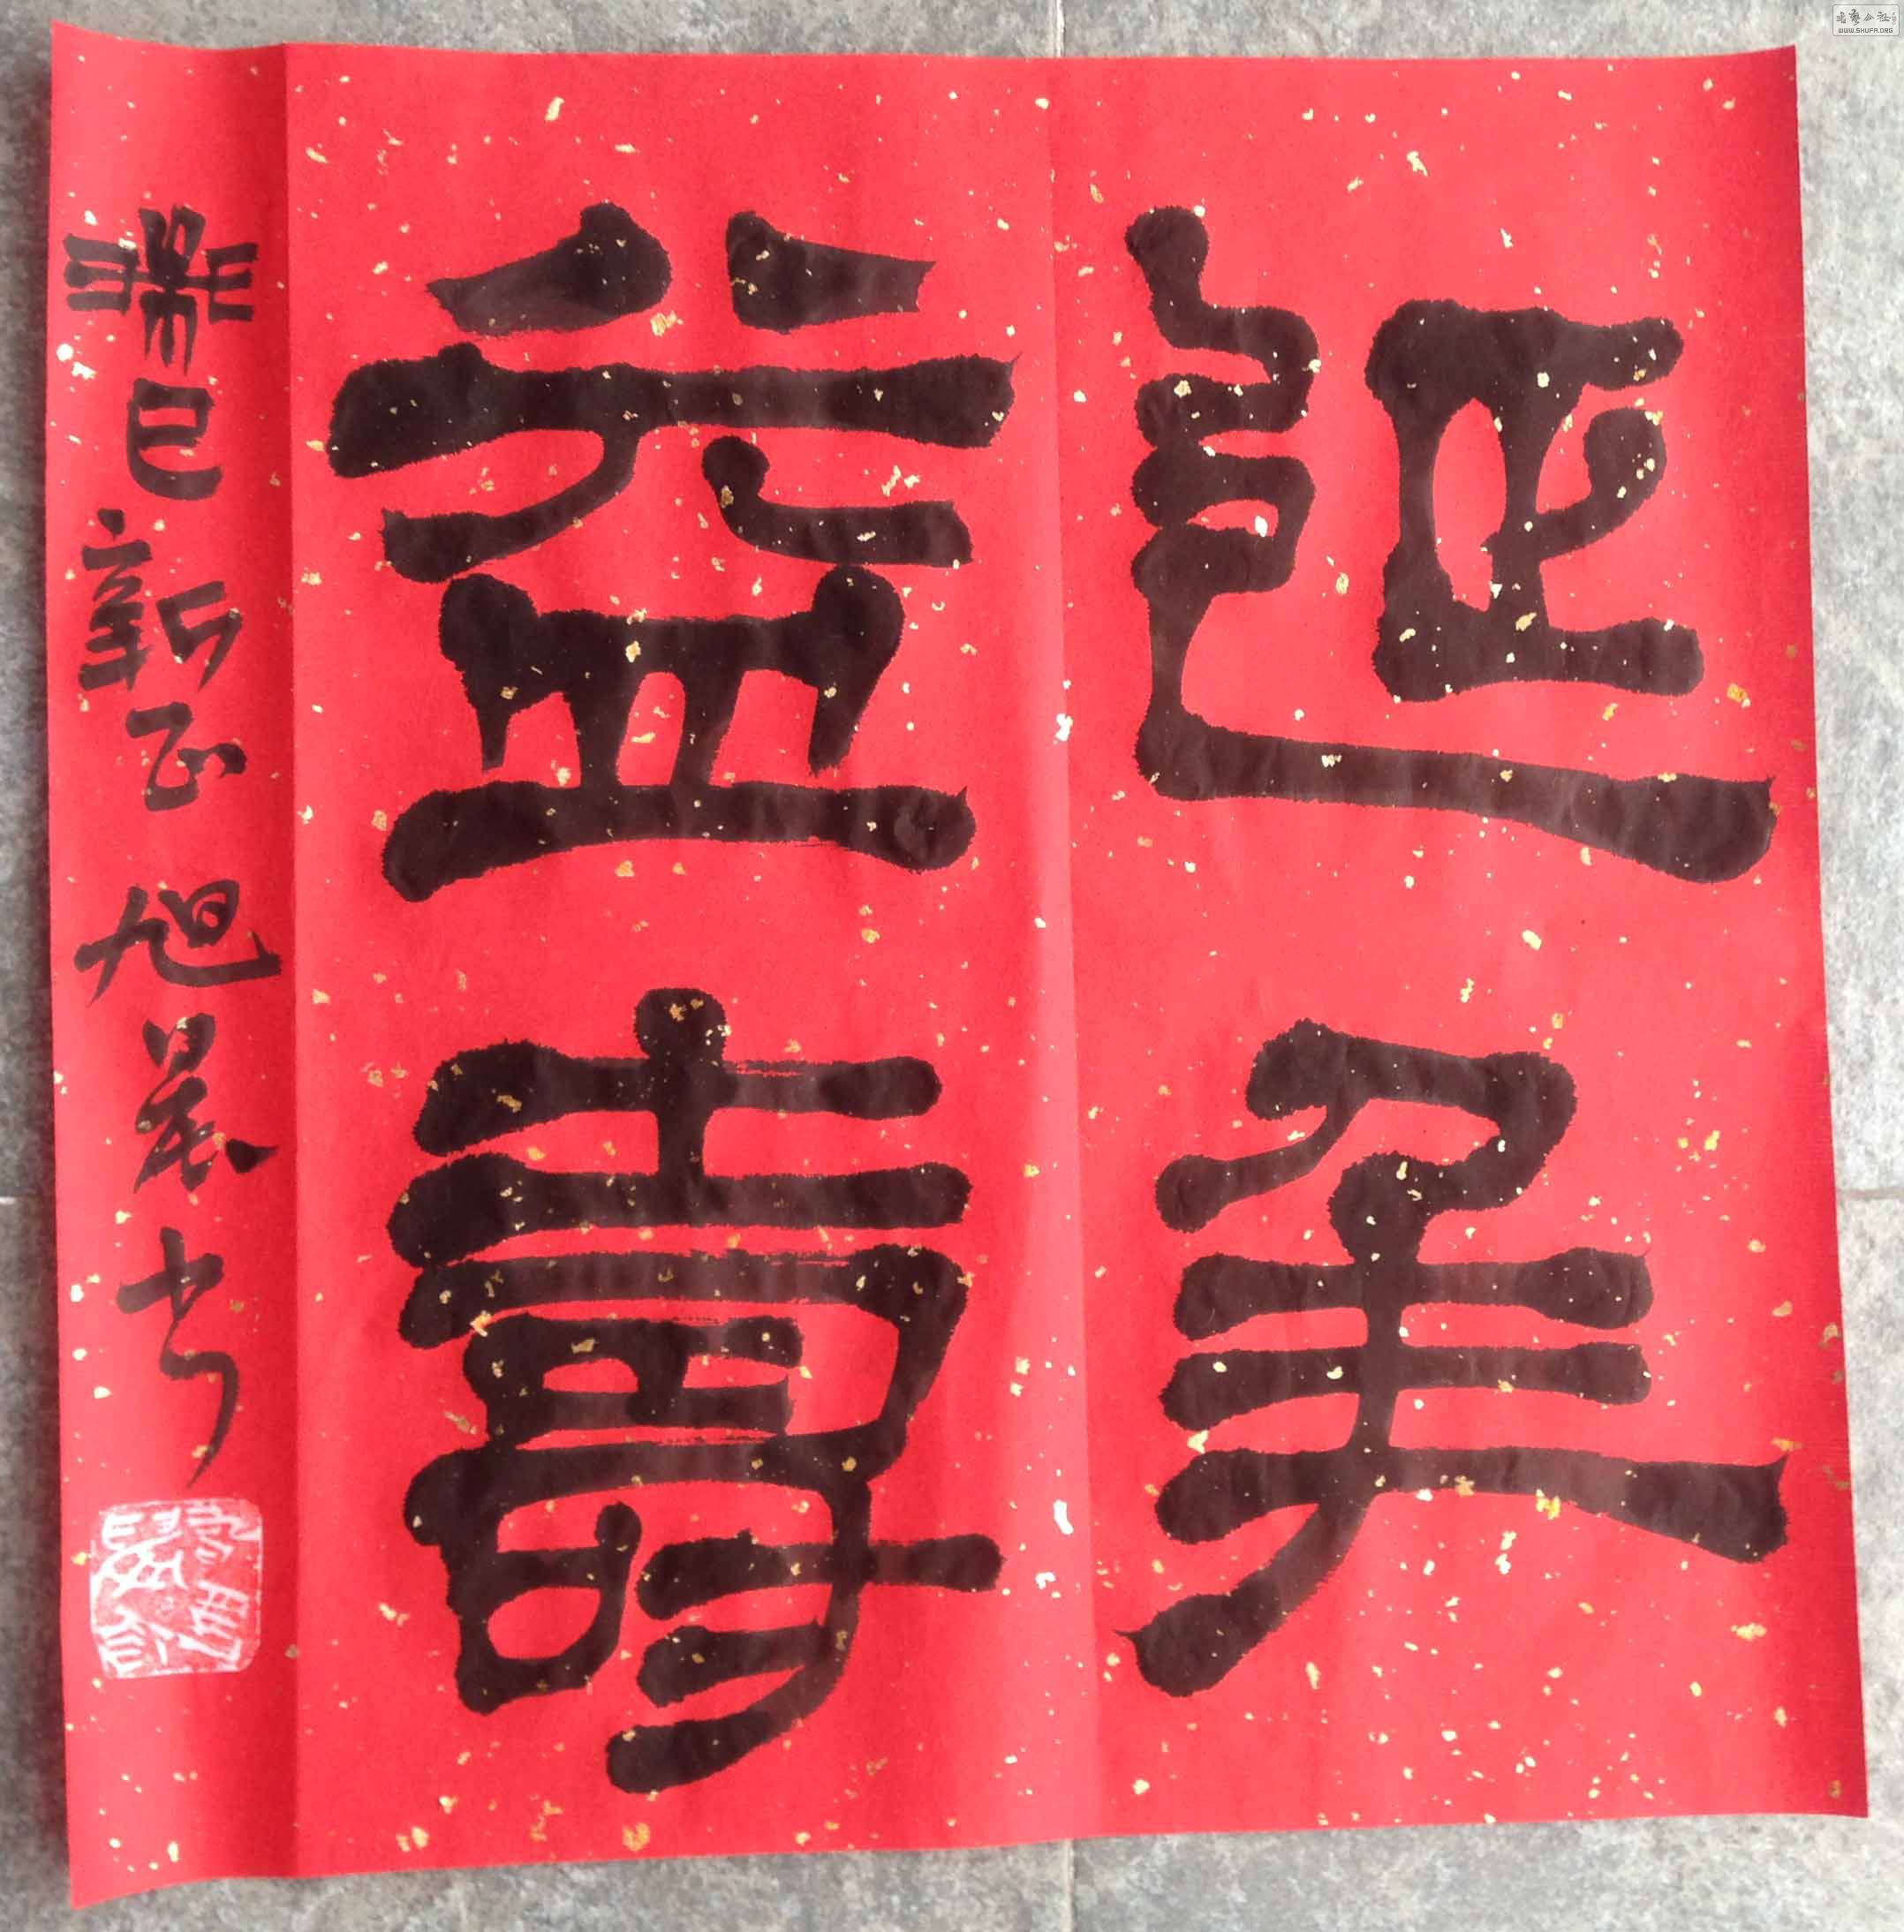 延年
益壽
癸巳新正旭晨书
书艺公社
WWW.SHUFA.ORG